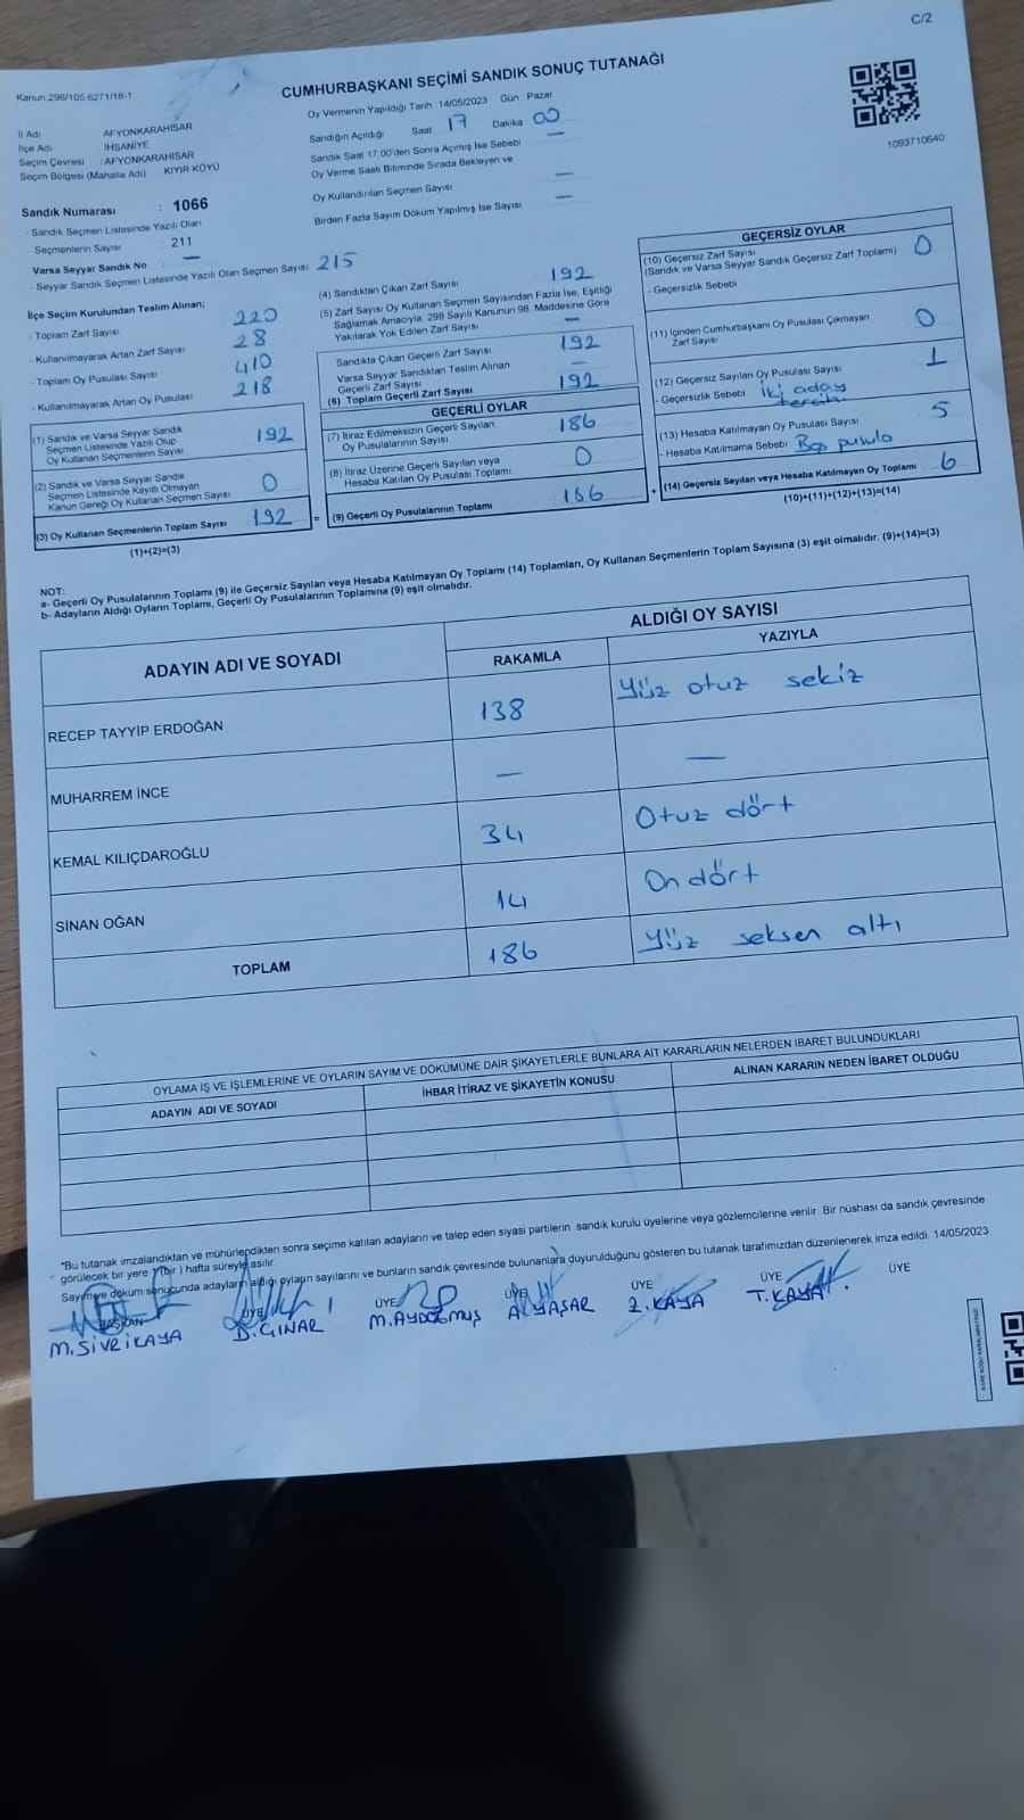 C/2
Kanun 298/105-6271/18-1
CUMHURBAŞKANI SEÇİMİ SANDIK SONUÇ TUTANAĞI
Oy Vermenin Yapıldığı Tarih 14/05/2023 Gün Pazar
Sandığın Açıldığı Saat 17 Dakika 00
Sandık Saat 17:00'den Sonra Açılmış İse Sebebi —
Oy Verme Saati Bitiminde Sırada Bekleyen ve
Oy Kullandırılan Seçmen Sayısı —
Birden Fazla Sayım Döküm Yapılmış İse Sayısı —
1093710640
İl Adı AFYONKARAHİSAR
İlçe Adı İHSANİYE
Seçim Çevresi : AFYONKARAHİSAR
Seçim Bölgesi (Mahalle Adı) KIYIR KÖYÜ
Sandık Numarası : 1066
- Sandık Seçmen Listesinde Yazılı Olan
Seçmenlerin Sayısı 211
Varsa Seyyar Sandık No —
- Seyyar Sandık Seçmen Listesinde Yazılı Olan Seçmen Sayısı 215
İlçe Seçim Kurulundan Teslim Alınan;
- Toplam Zarf Sayısı 220
- Kullanılmayarak Artan Zarf Sayısı 28
- Toplam Oy Pusulası Sayısı 410
- Kullanılmayarak Artan Oy Pusulası 218
(1) Sandık ve Varsa Seyyar Sandık
Seçmen Listesinde Yazılı Olup
Oy Kullanan Seçmenlerin Sayısı 192
(2) Sandık ve Varsa Seyyar Sandık
Seçmen Listesinde Kayıtlı Olmayan
Kanun Gereği Oy Kullanan Seçmen Sayısı 0
(3) Oy Kullanan Seçmenlerin Toplam Sayısı 192 =
(1)+(2)=(3)
(4) Sandıktan Çıkan Zarf Sayısı 192
(5) Zarf Sayısı Oy Kullanan Seçmen Sayısından Fazla İse, Eşitliği
Sağlamak Amacıyla, 298 Sayılı Kanunun 98. Maddesine Göre
Yakılarak Yok Edilen Zarf Sayısı —
Sandıkta Çıkan Geçerli Zarf Sayısı 192
Varsa Seyyar Sandıktan Teslim Alınan
Geçerli Zarf Sayısı —
(6) Toplam Geçerli Zarf Sayısı 192
GEÇERLİ OYLAR
(7) İtiraz Edilmeksizin Geçerli Sayılan
Oy Pusulalarının Sayısı 186
(8) İtiraz Üzerine Geçerli Sayılan veya
Hesaba Katılan Oy Pusulası Toplamı 0
(9) Geçerli Oy Pusulalarının Toplamı 186 +
GEÇERSİZ OYLAR
(10) Geçersiz Zarf Sayısı
(Sandık ve Varsa Seyyar Sandık Geçersiz Zarf Toplamı) 0
- Geçersizlik Sebebi
(11) İçinden Cumhurbaşkanı Oy Pusulası Çıkmayan
Zarf Sayısı 0
(12) Geçersiz Sayılan Oy Pusulası Sayısı 1
- Geçersizlik Sebebi İki aday
tercihi
(13) Hesaba Katılmayan Oy Pusulası Sayısı 5
- Hesaba Katılmama Sebebi Boş pusula
(14) Geçersiz Sayılan veya Hesaba Katılmayan Oy Toplamı 6
(10)+(11)+(12)+(13)=(14)
NOT:
a- Geçerli Oy Pusulalarının Toplamı (9) ile Geçersiz Sayılan veya Hesaba Katılmayan Oy Toplamı (14) Toplamları, Oy Kullanan Seçmenlerin Toplam Sayısına (3) eşit olmalıdır. (9)+(14)=(3)
b- Adayların Aldığı Oyların Toplamı, Geçerli Oy Pusulalarının Toplamına (9) eşit olmalıdır.
ADAYIN ADI VE SOYADI
ALDIĞI OY SAYISI
RAKAMLA YAZIYLA
RECEP TAYYİP ERDOĞAN 138 Yüz otuz sekiz
MUHARREM İNCE — —
KEMAL KILIÇDAROĞLU 34 Otuz dört
SİNAN OĞAN 14 On dört
TOPLAM 186 Yüz seksen altı
OYLAMA İŞ VE İŞLEMLERİNE VE OYLARIN SAYIM VE DÖKÜMÜNE DAİR ŞİKAYETLERLE BUNLARA AİT KARARLARIN NELERDEN İBARET BULUNDUKLARI
ADAYIN ADI VE SOYADI İHBAR İTİRAZ VE ŞİKAYETİN KONUSU ALINAN KARARIN NEDEN İBARET OLDUĞU
*Bu tutanak imzalandıktan ve mühürlendikten sonra seçime katılan adayların ve talep eden siyasi partilerin sandık kurulu üyelerine veya gözlemcilerine verilir. Bir nüshası da sandık çevresinde
görülecek bir yere 1 (bir) hafta süreyle asılır.
Sayım ve döküm sonucunda adayların aldığı oyların sayılarını ve bunların sandık çevresinde bulunanlara duyurulduğunu gösteren bu tutanak tarafımızdan düzenlenerek imza edildi. 14/05/2023
BAŞKAN ÜYE ÜYE ÜYE ÜYE ÜYE ÜYE
M. SİVRİKAYA D. ÇINAR M. AYDOĞMUŞ A. YAŞAR Z. KAYA T. KAYA